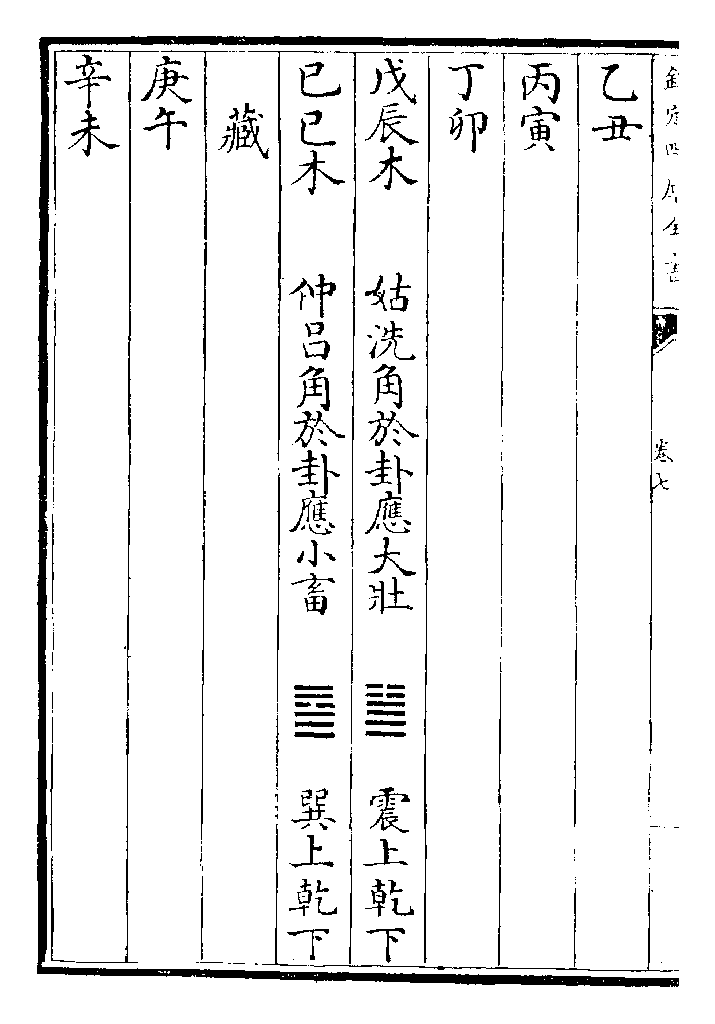 欽定四庫全書
卷七
乙丑
丙寅
丁卯
戊辰木　姑洗角於卦應大壯　䷡　震上乾下
已巳木　仲呂角於卦應小畜　䷈　巽上乾下
藏
庚午
辛未